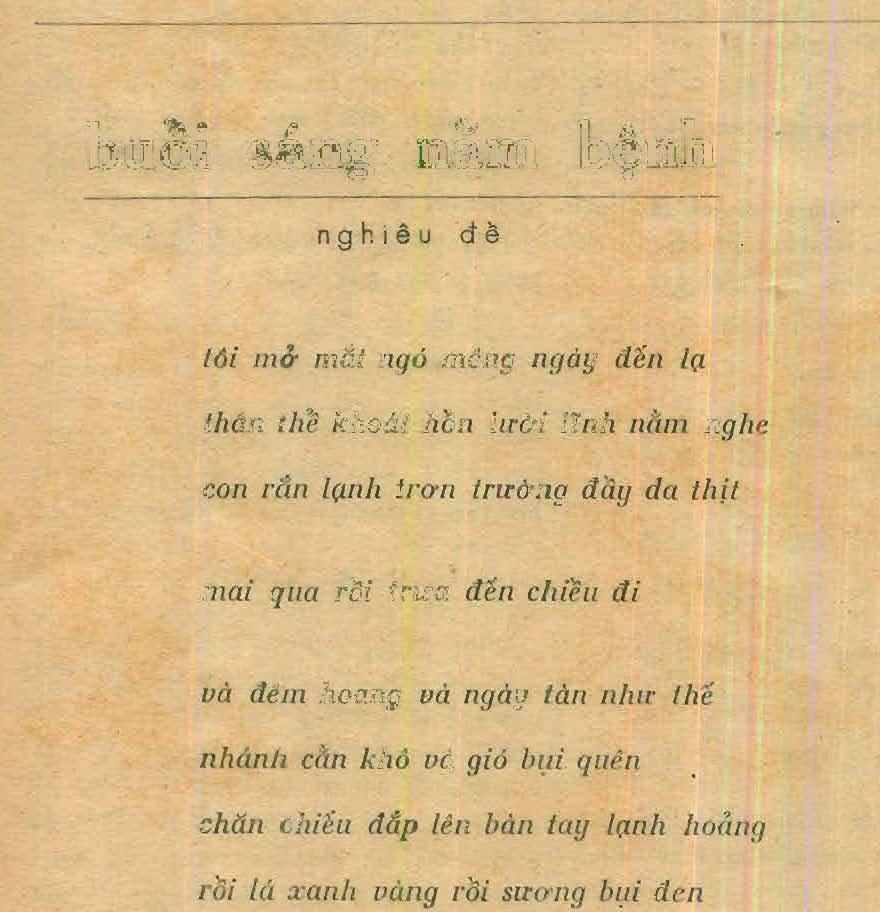 buổi sáng nằm bệnh
nghiêu đề
tôi mở mắt ngó mông ngày đến lạ
thân thể khoát hồn lười lĩnh nằm nghe
con rắn lạnh trơn trường đầy da thịt
mai qua rồi trưa đến chiều đi
và đêm hoang và ngày tàn như thế
nhánh cằn khô và gió bụi quên
chăn chiếu đắp lên bàn tay lạnh hoảng
rồi lá xanh vàng rồi sương bụi đen